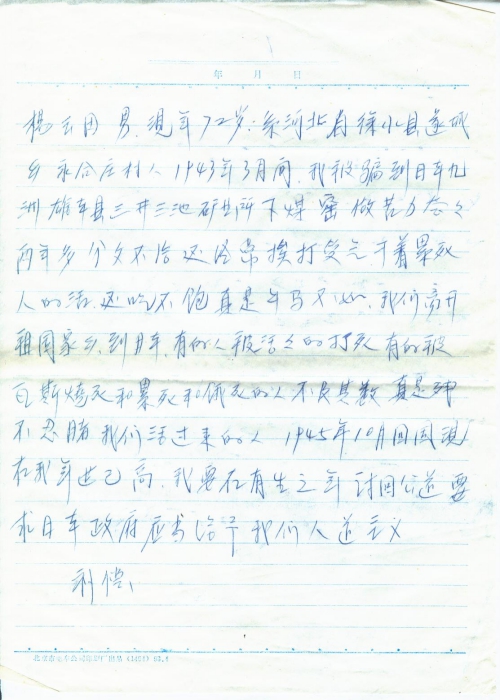 年 月 日
杨云田 男.现年72岁:系河北省徐水县遂城
乡永合庄村人1943年3月间.我被骗到日本九
洲雄本县三井三池矿业所下煤窑做苦力
两年多分文不给还经常挨打受气.干着累死
人的活.还吃不饱真是牛马不如.我们离开
祖国家乡.到日本.有的人被活活的打死有的被
瓦斯烧死和累死和饿死的人不及其数真是
不忍睹我们活过来的人1945年10月回国现
在我年迈已高.我要在有生之年讨回公道要
求日本政府应当给予我们人道主义